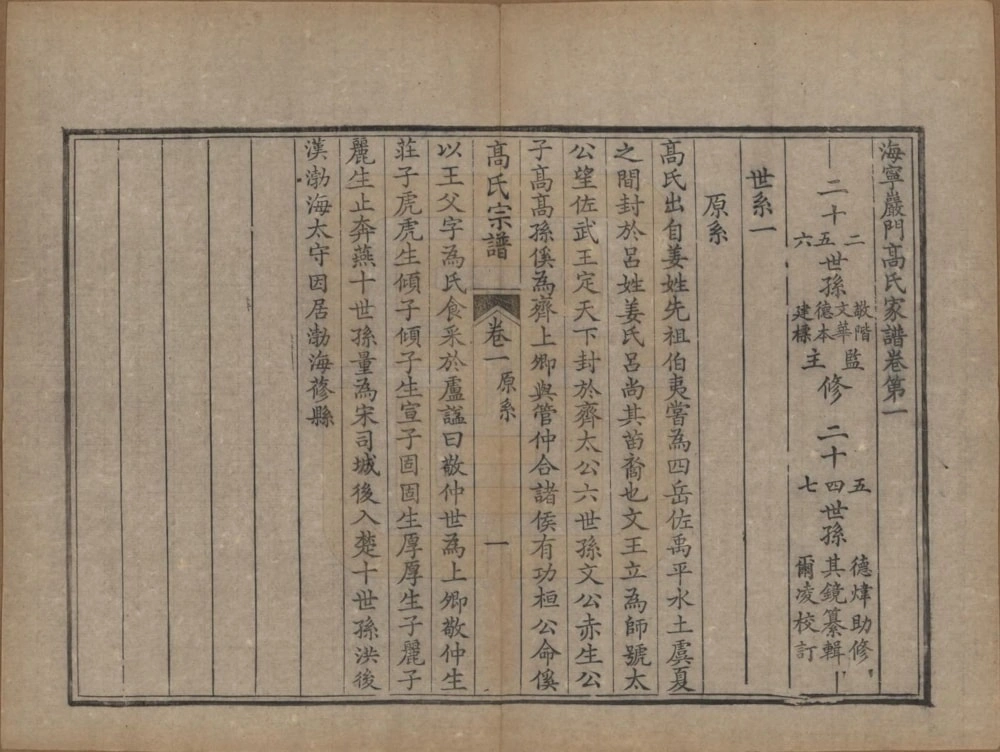 海寧嚴門高氏家譜卷第一
二十二世孫敬階監修
二十五世孫文華德本主修
二十六世孫建標主修
二十五世孫德煒助修
二十四世孫其鏡纂輯
二十七世孫爾凌校訂
世系一
原系
高氏出自姜姓先祖伯夷嘗為四岳佐禹平水土虞夏
之間封於呂姓姜氏呂尚其苗裔也文王立為師號太
公望佐武王定天下封於齊太公六世孫文公赤生公
子高高孫傒為齊上卿與管仲合諸侯有功桓公命傒
高氏宗譜 卷一 原系 一
以王父字為氏食采於盧諡曰敬仲世為上卿敬仲生
莊子虎虎生傾子傾子生宣子固固生厚厚生子麗子
麗生止奔燕十世孫量為宋司城後入楚十世孫洪後
漢渤海太守因居渤海蓚縣